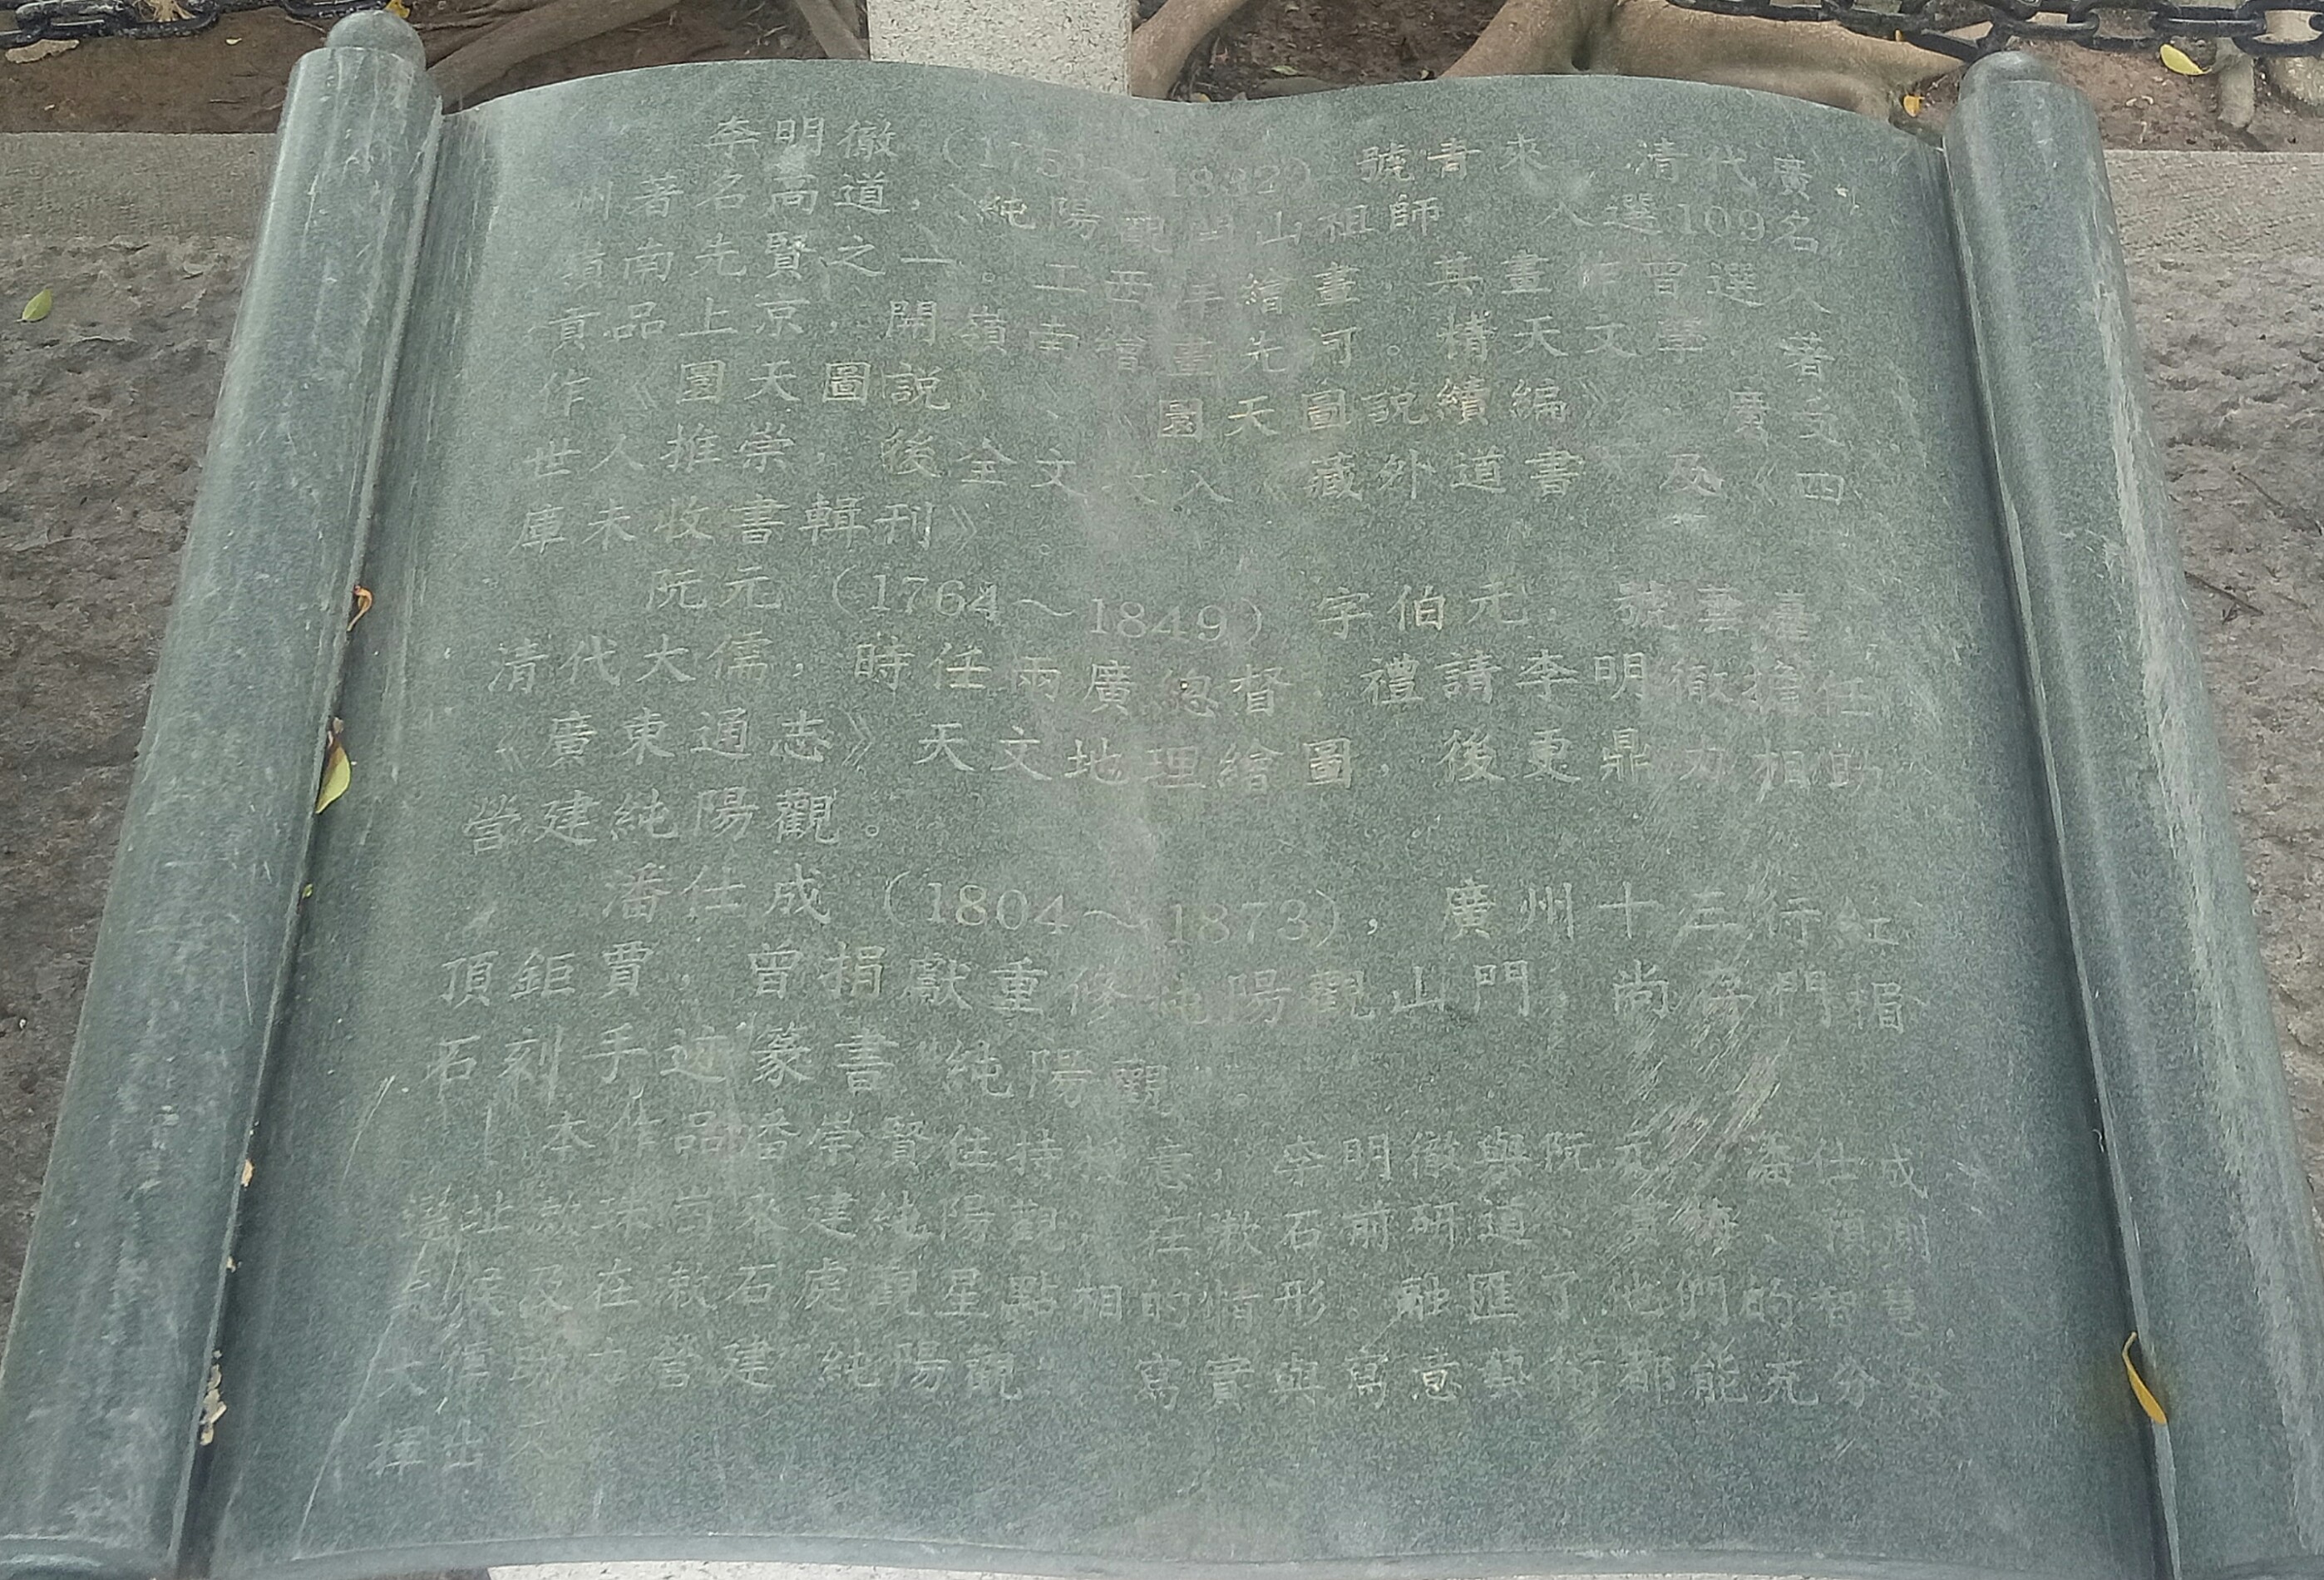 李明徹（1751～1832）號青來，清代廣
州著名高道，純陽觀開山祖師，入選109名
嶺南先賢之一。工西洋繪畫，其畫作曾選入
貢品上京，開嶺南繪畫先河。精天文，著
作《圜天圖說》、《圜天圖說續編》 廣受
世人推崇，後全文收入《藏外道書》及《四
庫未收書輯刊》。
阮元（1764～1849）字伯元，號芸臺，
清代大儒，時任兩廣總督，禮請李明徹擔任
《廣東通志》天文地理繪圖，後更鼎力相助
營建純陽觀。
潘仕成（1804～1873），廣州十三行紅
頂鉅賈，曾捐獻重修純陽觀山門，尚存門楣
石刻手迹篆書“純陽觀”。
本作品潘崇賢住持 意，李明徹與阮元、潘仕成
選址漱珠崗來建純陽觀，在漱石前研道、 預測
氣候及在漱石處觀星點相的情形，融匯了他們的智慧
營建純陽觀 寫實與寫意藝術都能充分發
揮出